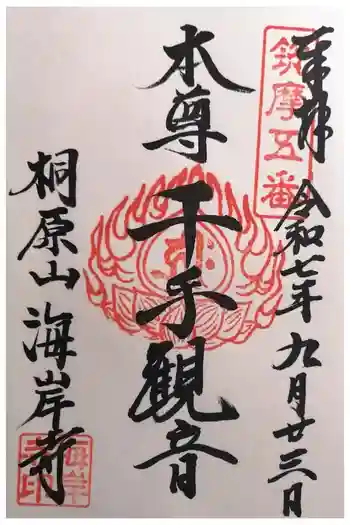 奉拝 令和七年九月廿三日
筑摩五番
本尊 千手観音
桐原山 海岸寺
海岸寺印